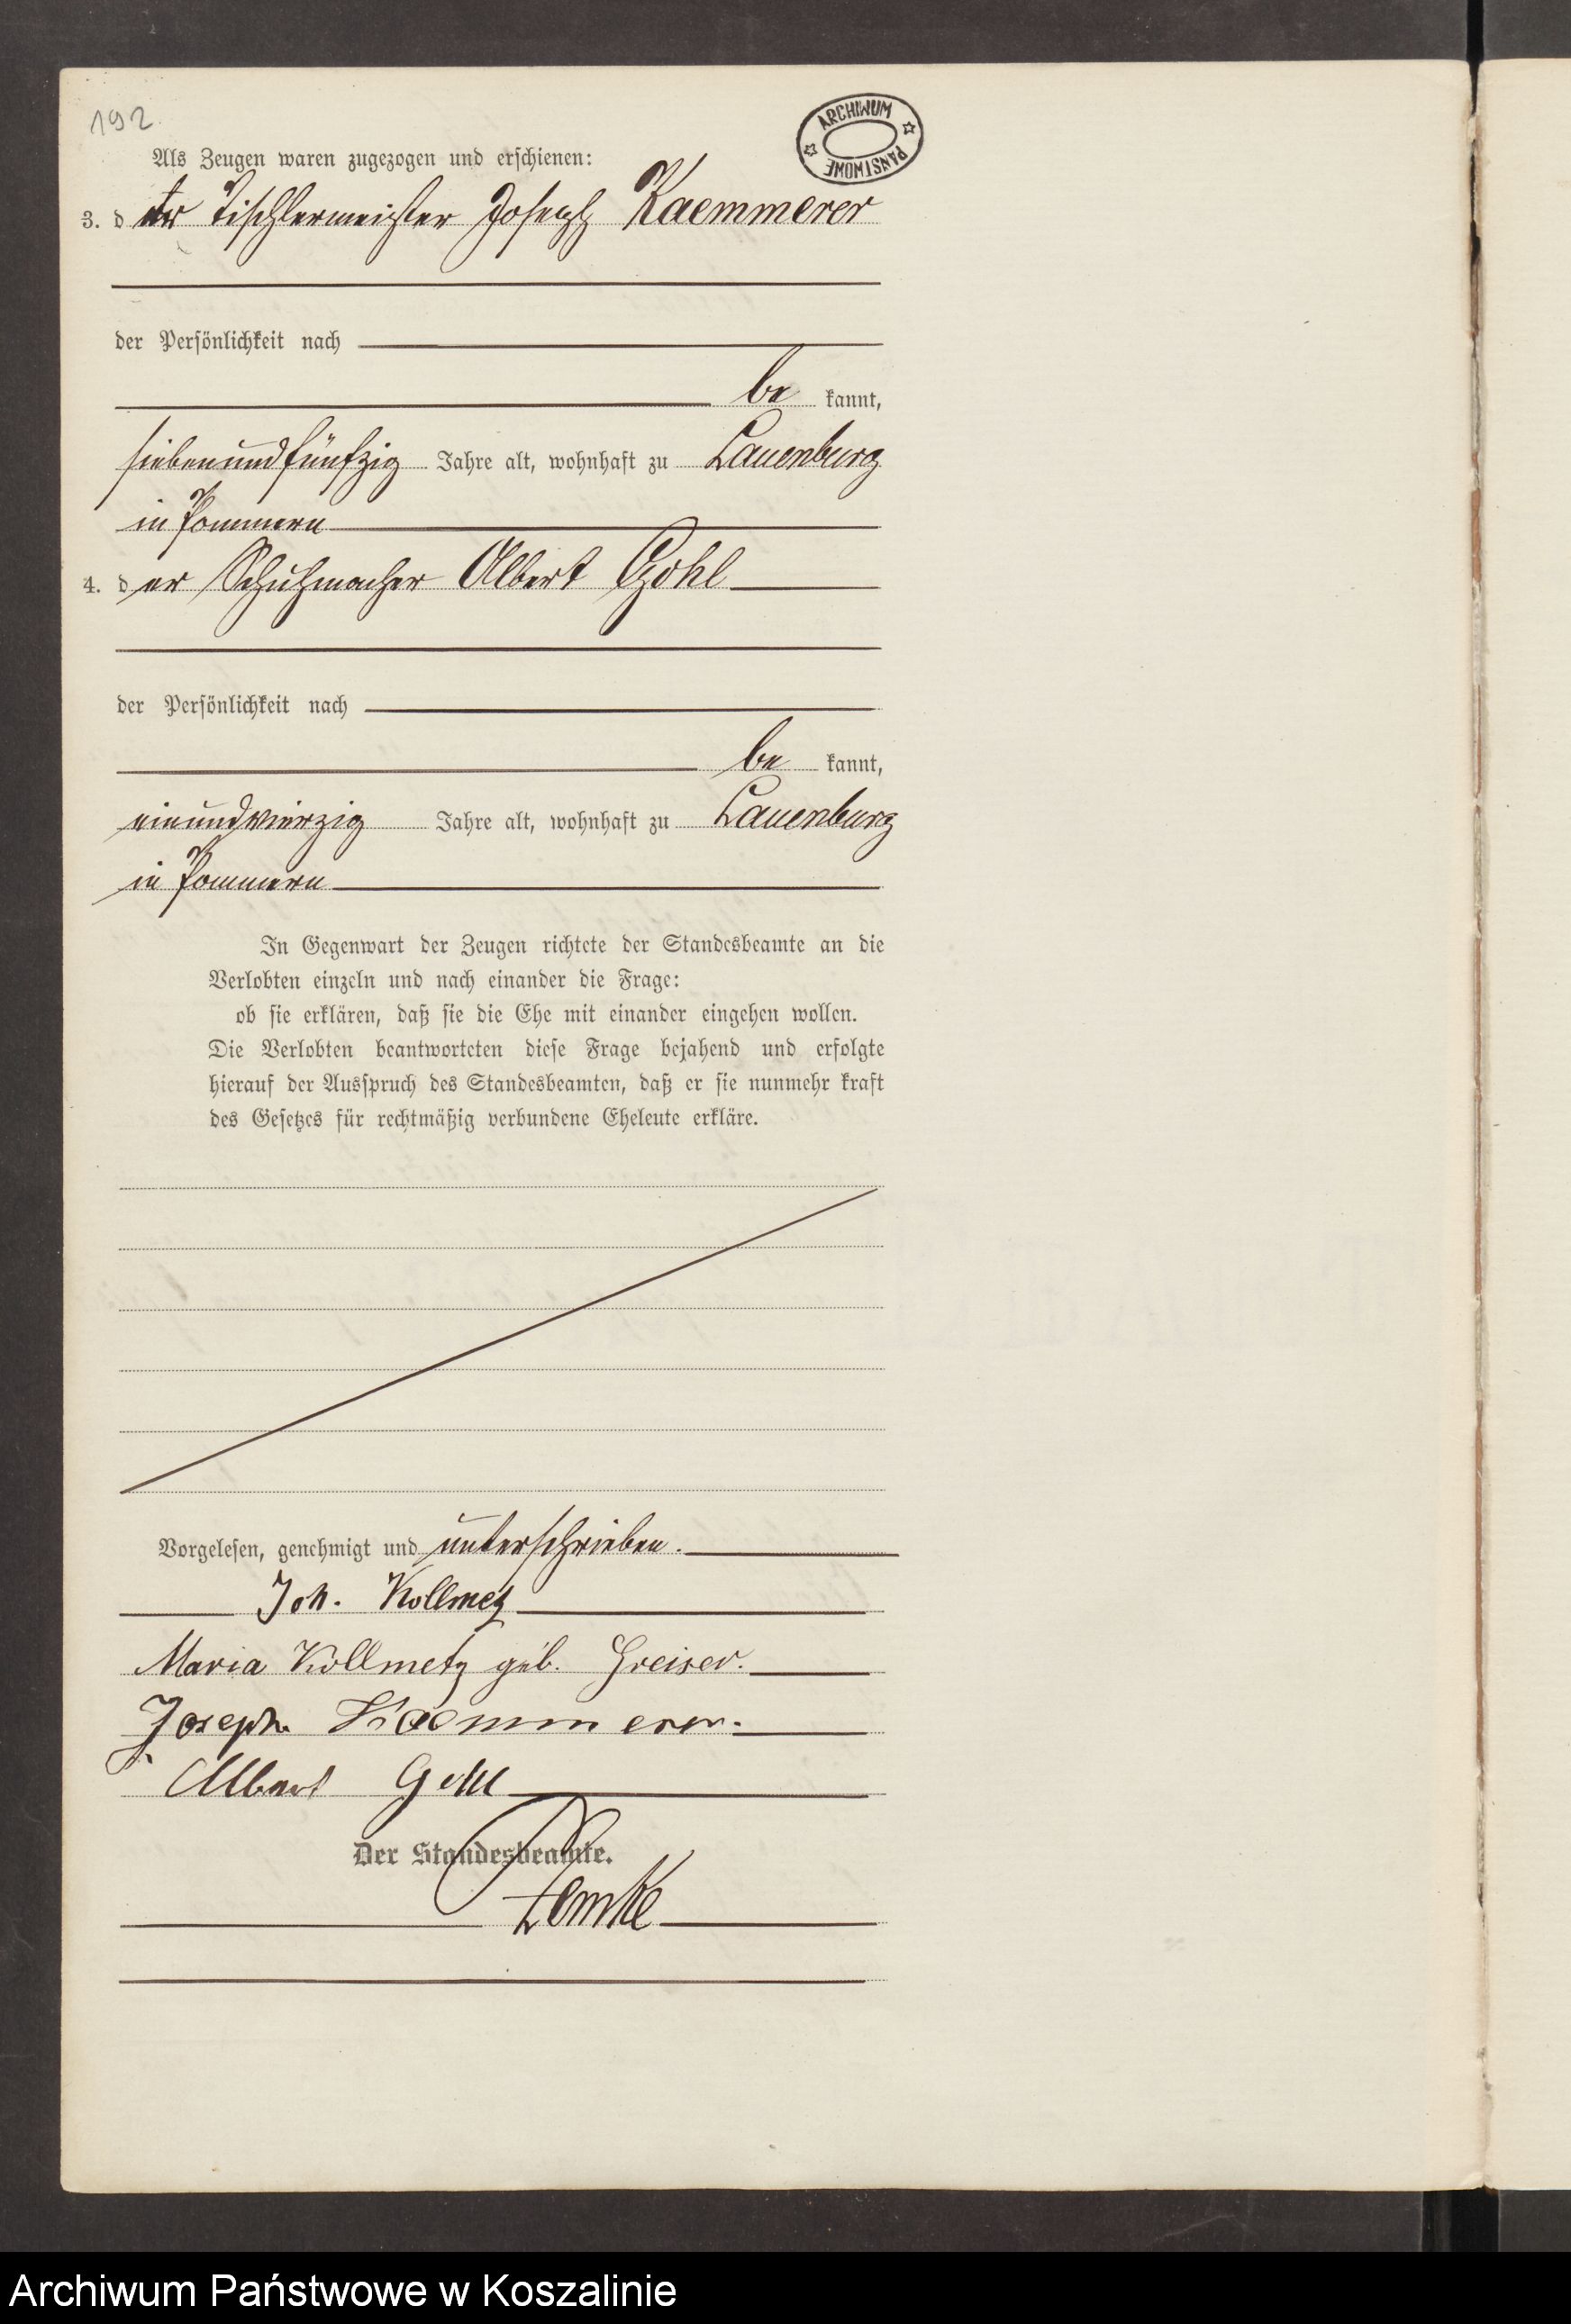 192
ARCHIWUM PAŃSTWOWE
Als Zeugen waren zugezogen und erschienen:
3. der Tischlermeister Joseph Kaemmerer
der Persönlichkeit nach
be kannt,
siebenundfünfzig Jahre alt, wohnhaft zu Lauenburg
in Pommern
4. der Schuhmacher Albert Gohl
der Persönlichkeit nach
be kannt,
einundvierzig Jahre alt, wohnhaft zu Lauenburg
in Pommern
In Gegenwart der Zeugen richtete der Standesbeamte an die
Verlobten einzeln und nach einander die Frage:
ob sie erklären, daß sie die Ehe mit einander eingehen wollen.
Die Verlobten beantworteten diese Frage bejahend und erfolgte
hierauf der Ausspruch des Standesbeamten, daß er sie nunmehr kraft
des Gesetzes für rechtmäßig verbundene Eheleute erkläre.
Vorgelesen, genehmigt und unterschrieben.
Joh. Kollmetz
Maria Kollmetz geb. Greiser.
Joseph Kaemmerer.
Albert Gohl
Der Standesbeamte.
Zemke
Archiwum Państwowe w Koszalinie